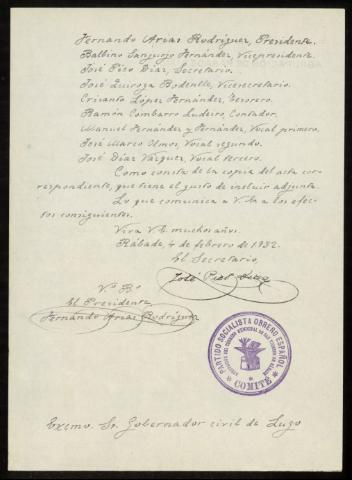 Fernando Arcas Rodríguez, Presidente.
Balbino Sanjurjo Fernández, Vicepresidente.
José Pico Díaz, Secretario.
José Quiroga Vicesecretario.
Crisanto López Fernández, Tesorero.
Ramón Combarro Ludeiro, Contador.
Manuel Fernández y Fernández, Vocal primero.
José Marco Vocal segundo.
José Díaz Vázquez, Vocal tercero.
Como consta de la copia del acta cor-
respondiente, que tiene el gusto de incluir adjunta.
Lo que comunica a V. a los efec-
tos consiguientes.
Viva V. muchos años.
Rábade, 4 de febrero de 1932.
El Secretario,
José
Vº Bº
El Presidente,
Fernando Arcas Rodríguez
PARTIDO SOCIALISTA OBRERO ESPAÑOL
COMITÉ
Excmo. Sr. Gobernador civil de Lugo